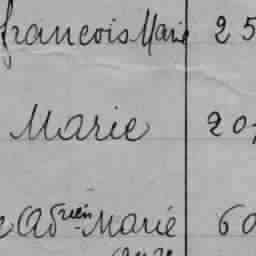 françois Marie 25
Marie 20
Adrien-Marie 60